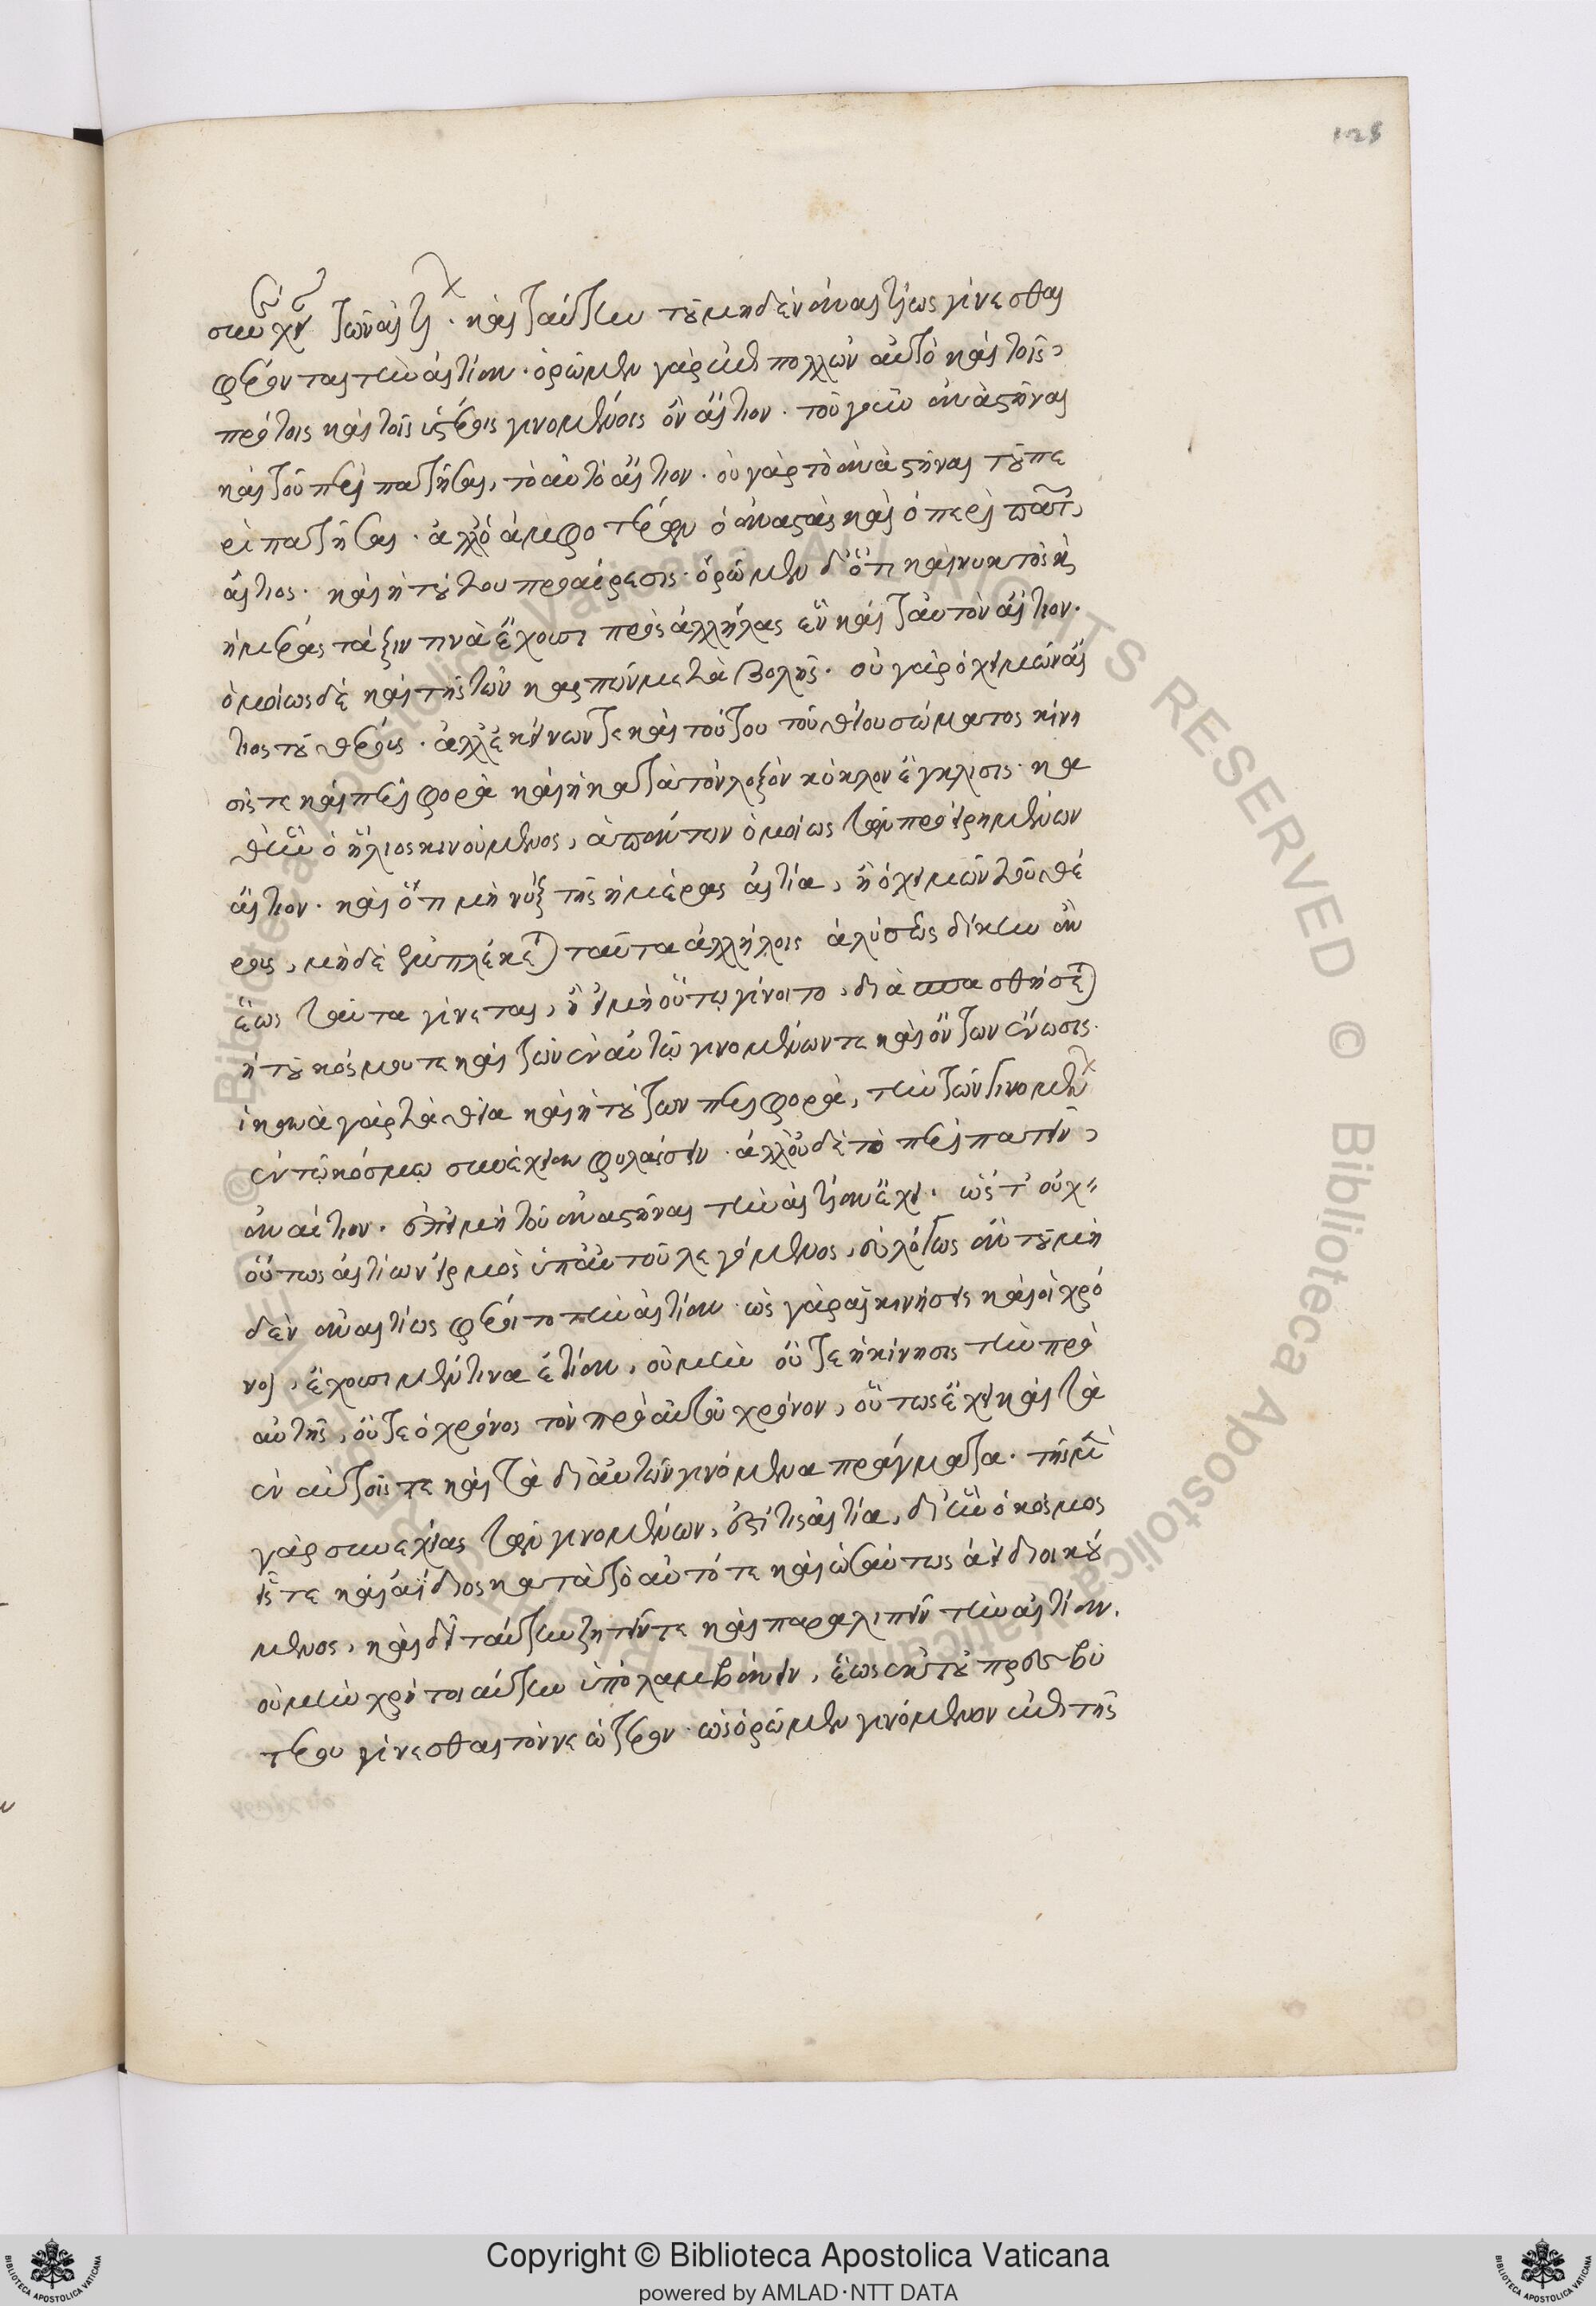 συνέχειαν τῶν αἰτι. καὶ ταύτην τοῦ μηδὲν ἀναιτίως γίνεσθαι
φέρονται τὴν αἰτίαν. ὁρῶμεν γὰρ ἐπὶ πολλῶν αὐτὸ καὶ τοῖς
πρώτοις καὶ τοῖς ὑστέροις γινομένοις ὂν αἴτιον. τοῦ γοῦν ἀναστῆναι
καὶ τοῦ περιπατῆσαι, τὸ αὐτὸ αἴτιον. οὐ γὰρ τὸ ἀναστῆναι τοῦ πε
ριπατῆσαι. ἀλλ' ἀμφοτέρων ὁ ἀναστὰς καὶ ὁ περιπατῶν,
αἴτιος. καὶ ἡ τούτου προαίρεσις. ὁρῶμεν δ' ὅτι καὶ νυκτὸς κ(αὶ)
ἡμέρας τάξιν τινὰ ἔχουσι πρὸς ἀλλήλας ἓν καὶ ταὐτὸν αἴτιον.
ὁμοίως δὲ καὶ τῆς τῶν καρπῶν μεταβολῆς. οὐ γὰρ ὁ χειμὼν αἴ
τιος τοῦ θέρους. ἀλλ' ἐκείνων τε καὶ τούτου τοῦ θείου σώματος κίνη
σίς τε καὶ περιφορὰ καὶ ἡ κατὰ τὸν λοξὸν κύκλον ἔγκλισις. κα
θ' ἣν ὁ ἥλιος κινούμενος, ἁπάντων ὁμοίως τῶν προειρημένων
αἴτιον. καὶ ὅτι μὴ νὺξ τῆς ἡμέρας αἰτία, ἢ ὁ χειμὼν τοῦ θέ
ρους, μηδὲ ἐμπλέκεται ταῦτα ἀλλήλοις ἁλύσεως δίκην ἀν
έως ταῦτα γίνεται, ἢ εἰ μὴ οὕτω γίνοιτο, διασπασθήσεται
ἡ τοῦ κόσμου τε καὶ τῶν ἐν αὐτῷ γινομένων τε καὶ ὄντων ἕνωσις.
ἱκανὰ γὰρ τὰ θεῖα καὶ ἡ τούτων περιφορὰ, τὴν τῶν γινομένων
ἐν τῷ κόσμῳ συνέχειαν φυλάσσειν. ἀλλ' οὐδὲ τὸ περιπατεῖν,
ἀναίτιον. ἐπεὶ μὴ τοῦ ἀναστῆναι τὴν αἰτίαν ἔχει. ὥστ' οὐχ
οὕτως αἰτίων εἱρμὸς ὑπ' αὐτοῦ λεγόμενος, εὐλόγως ἂν τοῦ μη
δὲν ἀναιτίως φέροιτο τὴν αἰτίαν. ὡς γὰρ αἱ κινήσεις καὶ οἱ χρό
νοι, ἔχουσι μέν τινα αἰτίαν, οὐ μὴν οὔτε ἡ κίνησις τὴν πρὸ
αὐτῆς, οὔτε ὁ χρόνος τὸν πρὸ αὐτοῦ χρόνον, οὕτως ἔχει καὶ τὰ
ἐν αὐτοῖς τε καὶ τὰ δι' αὐτῶν γινόμενα πράγματα. τῆς μὲν
γὰρ συνεχείας τῶν γινομένων, ἔστι τις αἰτία, δι' ἣν ὁ κόσμος
εἷς τε καὶ ἀΐδιος κατὰ τὸ αὐτό τε καὶ ὡσαύτως ἀεὶ διοικού
μενος, καὶ δεῖ ταύτην ζητεῖν τε καὶ παραλιπεῖν τὴν αἰτίαν.
οὐ μὴν χρή τοι αὐτὴν ὑπολαμβάνειν, ἕως ἐκ τοῦ πρεσβυ
τέρου γίνεσθαι τὸν νεώτερον. ὡς ὁρῶμεν γινόμενον ἐπὶ τῆς